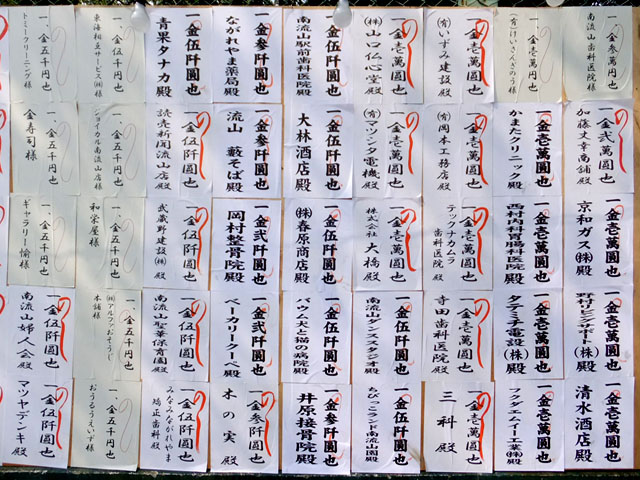 一、金参萬円也
南流山歯科医院 様
一、金壱萬円也
(有)けいさんぎのう 様
一金壱萬圓也
(有)いずみ建設 殿
一金壱萬圓也
(株)山口仏心堂 殿
一金伍阡圓也
南流山駅前歯科医院殿
一金参阡圓也
ながれやま薬局殿
一金伍阡圓也
青果タナカ殿
一、金伍千円也
東海相互サービス(株)様
一、金五千円也
トミークリーニング様
一金弐萬圓也
加藤丈幸商舗殿
一金壱萬圓也
かまたクリニック殿
一金壱萬圓也
(有)岡本工務店 殿
一金壱萬圓也
(有)マツシタ電機 殿
一金伍阡圓也
大林酒店殿
一金参阡圓也
流山 藪そば殿
一金伍阡圓也
読売新聞流山店 殿
一、金五千円也
ジョイカル南流山店 様
金寿司様
一金壱萬圓也
京和ガス(株)殿
一金壱萬圓也
西村内科胃腸科医院殿
一金壱萬圓也
テックナカムラ
歯科医院 殿
一金壱萬圓也
株式会社 大橋 殿
一金伍阡圓也
(株)春原商店殿
一金弐阡圓也
岡村整骨院殿
一金伍阡圓也
武蔵野建設(株) 殿
一、金五千円也
和栄屋様
一、金五千円也
ギャラリー愉様
一金壱萬圓也
野村リビングサポート(株)殿
一金壱萬圓也
タテミチ電設(株)殿
一金壱萬圓也
寺田歯科医院 殿
一金伍阡圓也
南流山ダンススタジオ殿
一金伍阡圓也
バウム犬と猫の病院殿
一金弐阡圓也
ベーカリークーペ殿
一金伍阡圓也
南流山聖華保育園 殿
一、金五千円也
(株)アルファおそうじ
本舗様
一金伍阡圓也
南流山婦人会 殿
一金壱萬圓也
清水酒店殿
一金壱萬圓也
フクダエムイー工業(株)殿
一金壱萬圓也
三科 殿
一金伍阡圓也
ちびっこランド南流山園殿
一金参阡圓也
井原接骨院殿
一金参阡圓也
木の実 殿
一金伍阡圓也
みなみながれやま
矯正歯科 殿
一、金五千円也
おうるうえいず様
一金伍阡圓也
マツヤデンキ 殿